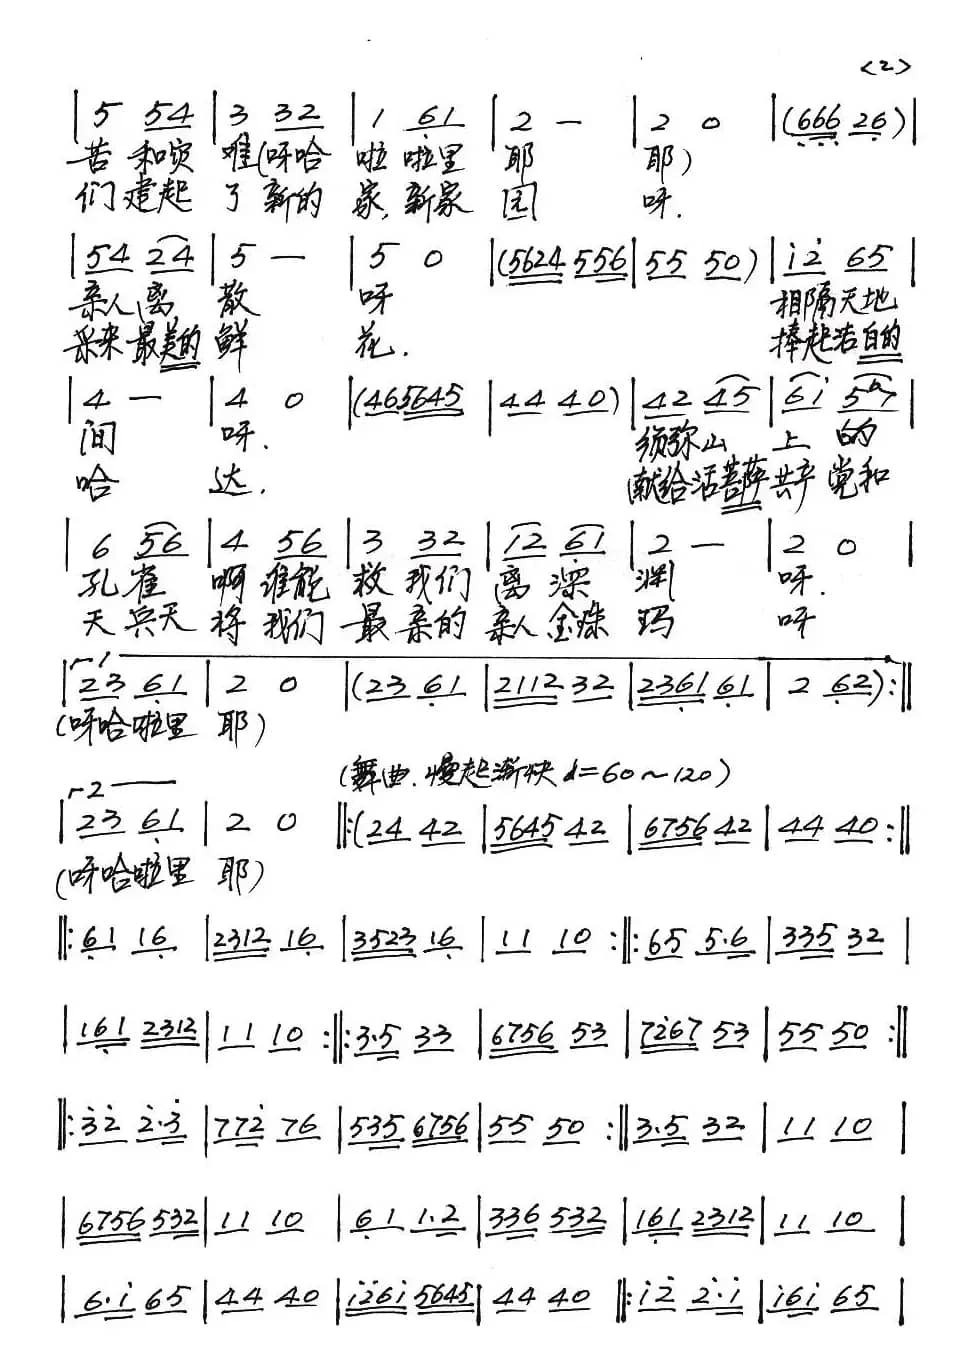 <2>
| 5 54 | 3 32 | 1 61 | 2 — | 2 0 | (666 26) |
苦和灾 难(呀哈 啦 啦里 耶 耶)
们建起 了新的 家,新家 园 呀.
| 54 24 | 5 — | 5 0 | (5624 556 | 55 50) | i2 65 |
亲人离 散 呀 相隔天地
采来最美的鲜 花. 捧起洁白的
| 4 — | 4 0 | (465645 | 44 40) | 42 45 | 6i 56 |
间 呀. 须弥山 上 的
哈 达. (献给活菩萨共产党和
| 6 56 | 4 56 | 3 32 | 12 61 | 2 — | 2 0 |
孔雀 啊谁能 救我们 离深 渊 呀.
天兵天 将我们 最亲的 亲人金珠 玛 呀
┌1
| 23 61 | 2 0 | (23 61 | 2112 32 | 2361 61 | 2 62) :||
(呀哈啦里 耶)
(舞曲.慢起渐快 d=60~120)
┌2
| 23 61 | 2 0 ||: (24 42 | 5645 42 | 6756 42 | 44 40 :||
(呀哈啦里 耶)
||: 61 16 | 2312 16 | 3523 16 | 11 10 :||: 65 5·6 | 335 32 |
| 161 2312 | 11 10 :||: 3·5 33 | 6756 53 | 7267 53 | 55 50 :||
||: 32 2·3 | 772 76 | 535 6756 | 55 50 :|| 3·5 32 | 11 10 |
| 6756 532 | 11 10 | 61 1·2 | 336 532 | 161 2312 | 11 10 |
| 6·i 65 | 44 40 | i26i 5645 | 44 40 ||: i2 2·i | i6i 65 |